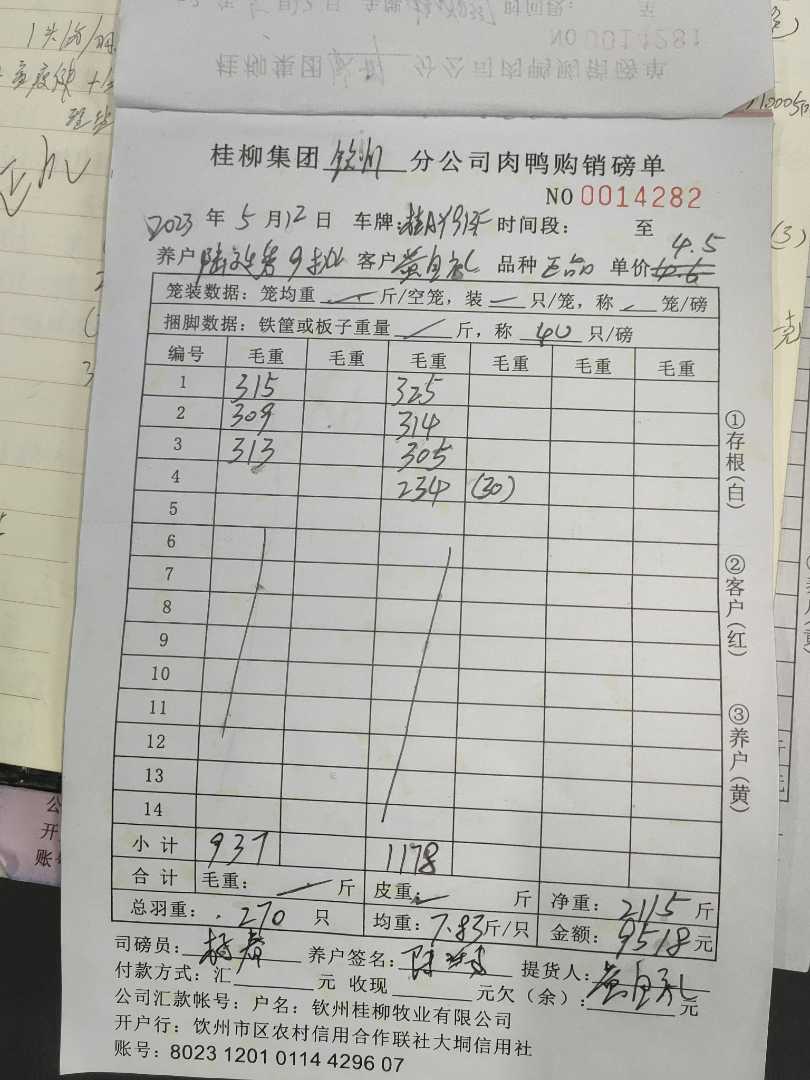 NO 0014281
桂柳集团 分公司肉鸭购销磅单
桂柳集团 钦州 分公司肉鸭购销磅单
NO 0014282
2023 年 5 月 12 日 车牌: 时间段: 至
4.5
养户 9批 客户 黄自礼 品种 正品 单价 4.6
笼装数据: 笼均重 斤/空笼, 装 只/笼, 称 笼/磅
捆脚数据: 铁筐或板子重量 斤, 称 40 只/磅
编号 毛重 毛重 毛重 毛重 毛重 毛重
1 315 325
2 309 314
3 313 305
4 234 (30)
5
6
7
8
9
10
11
12
13
14
小计 937 1178
合计 毛重: 斤 皮重: 斤 净重: 2115 斤
总羽重: 270 只 均重: 7.83 斤/只 金额: 9518 元
司磅员: 养户签名: 提货人: 黄自礼
付款方式: 汇 元 收现 元欠(余): 元
公司汇款帐号: 户名: 钦州桂柳牧业有限公司
开户行: 饮州市区农村信用合作联社大垌信用社
账号: 8023 1201 0114 4296 07
①存根(白)
②客户(红)
③养户(黄)